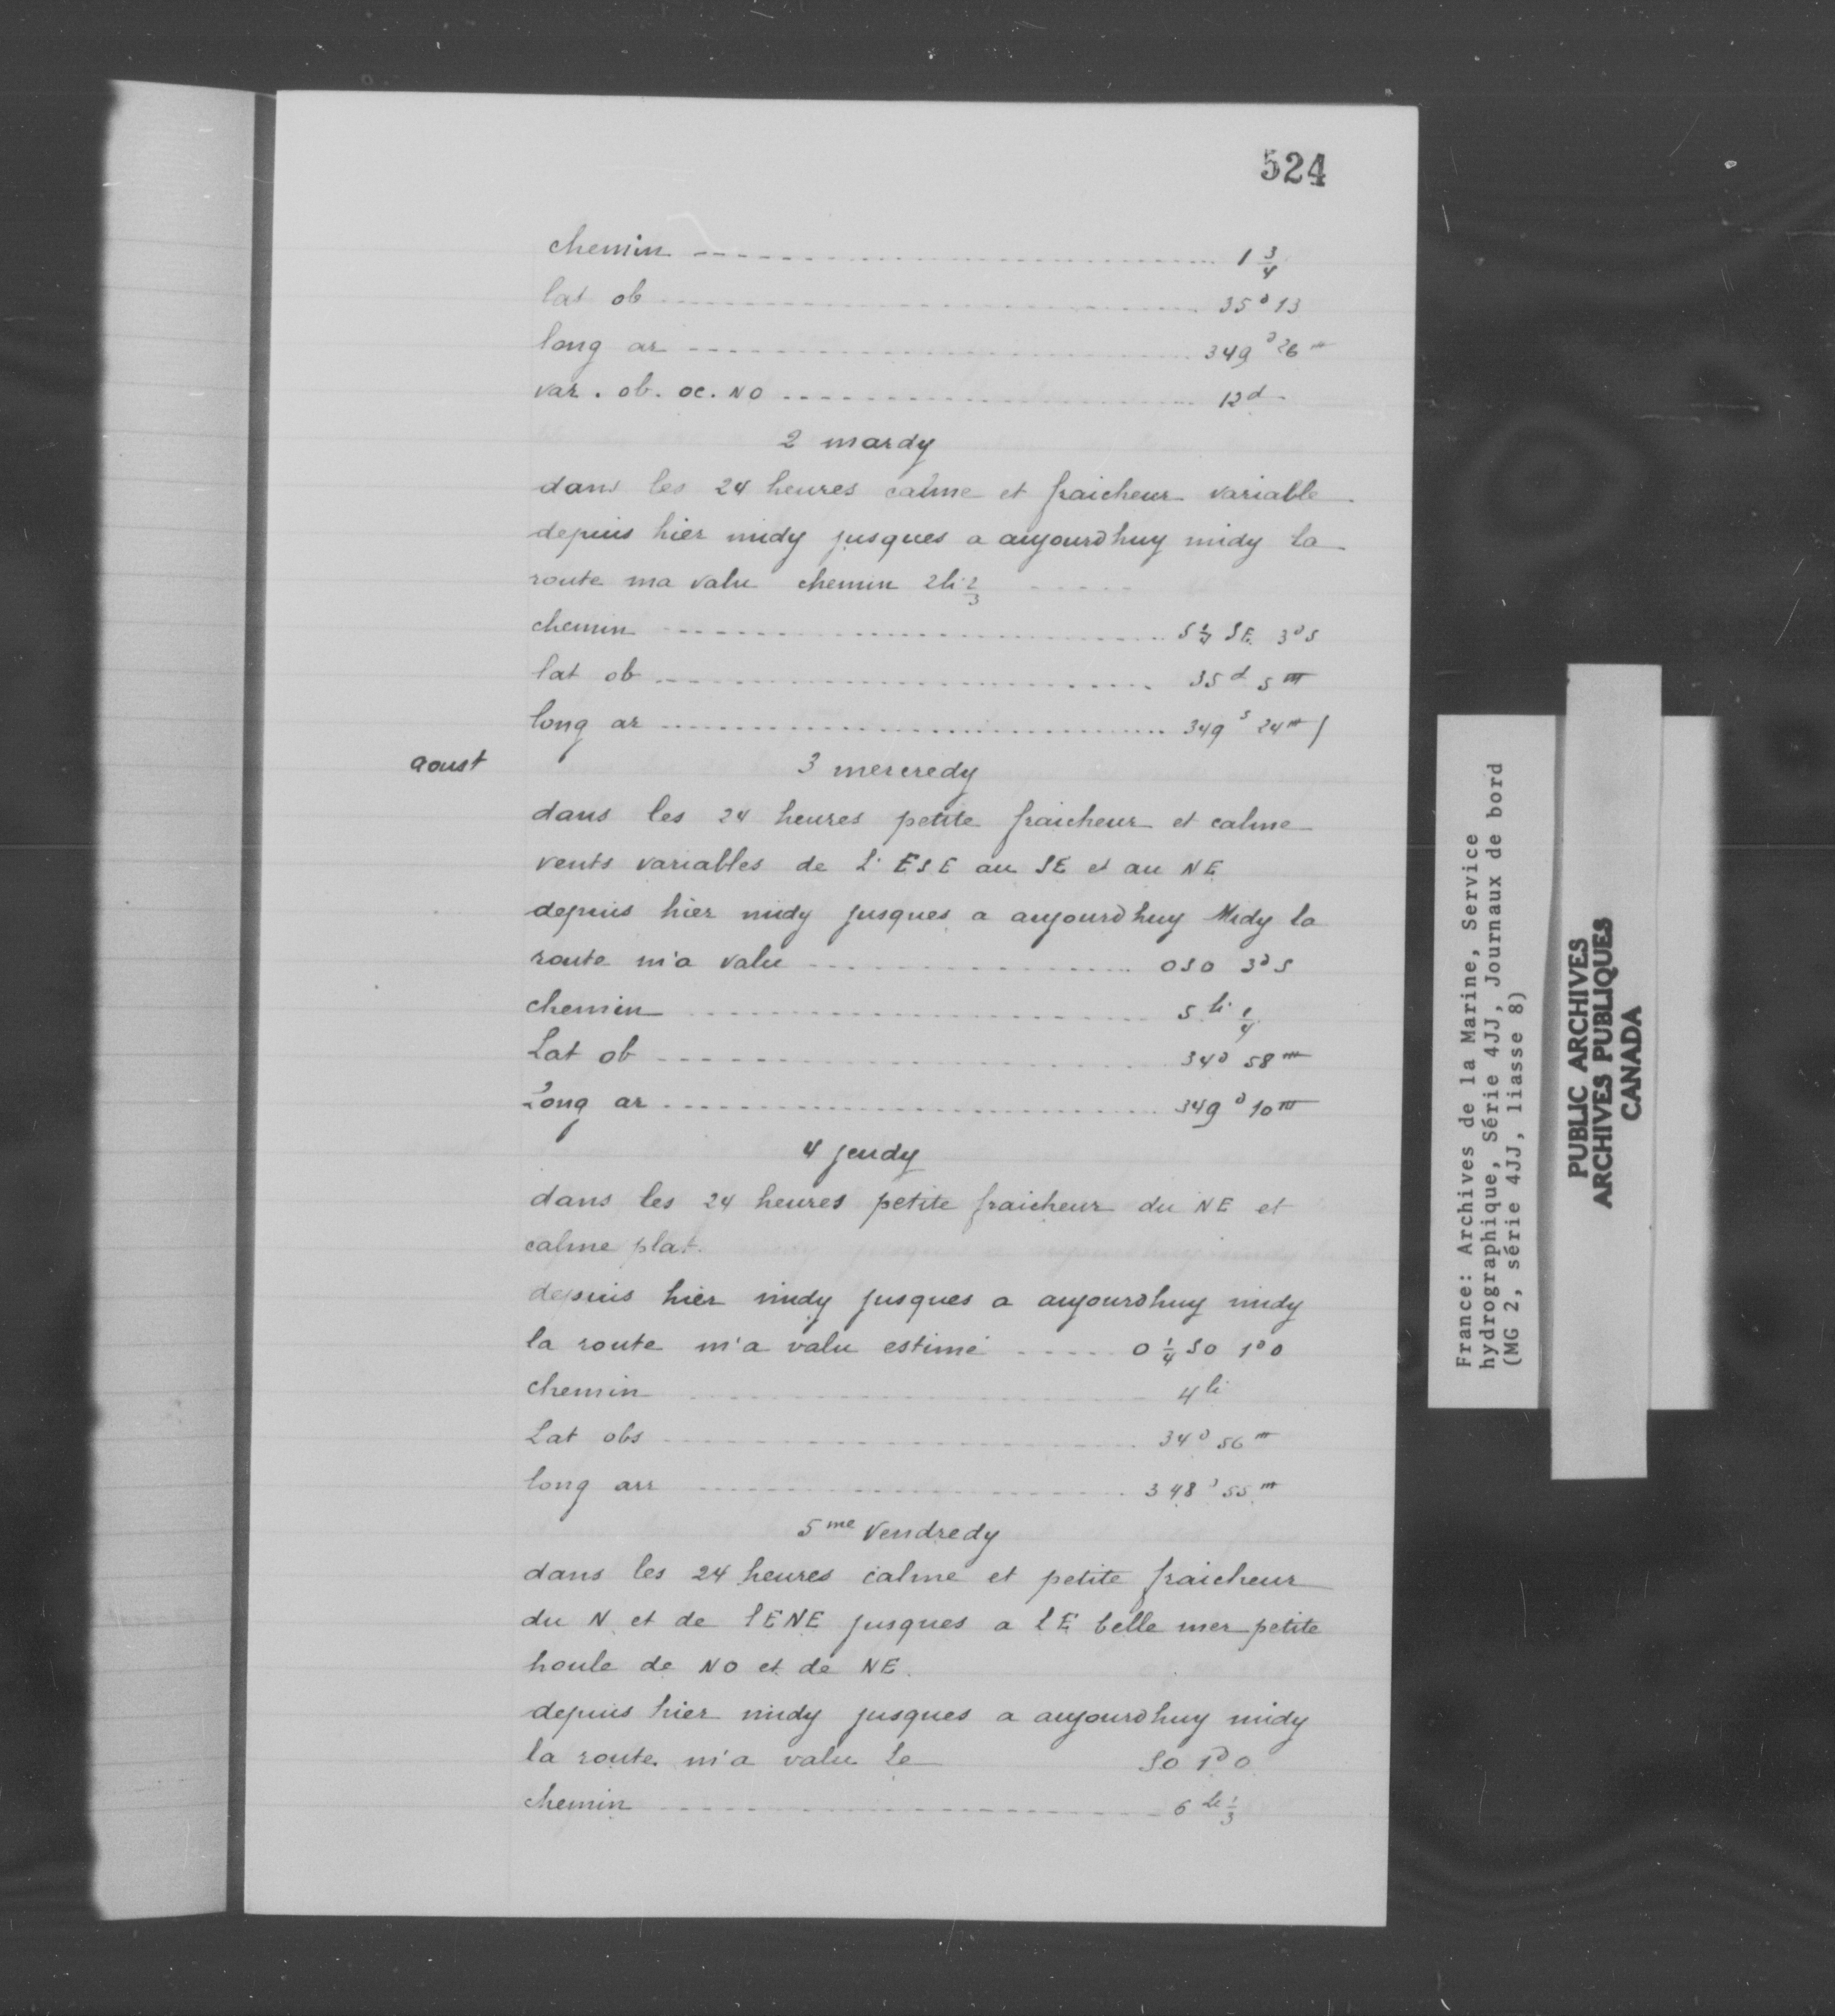 524
chemin ........ 1 3/4
lat ob ........ 35d 13
long ar ........ 349d 26m
var. ob. oc. NO ........ 12d
2 mardy
dans les 24 heures calme et fraicheur variable
depuis hier midy jusques a aujourdhuy midy la
route ma valu chemin 2li 2/3 .....
chemin ........ S 1/4 SE 3d S
lat ob ........ 35d 5m
long ar ........ 349d 24m
aoust
3 mercredy
dans les 24 heures petite fraicheur et calme
vents variables de L'ESE au SE et au NE
depuis hier midy jusques a aujourdhuy Midy la
route m'a valu ........ OSO 3d S
chemin ........ 5li 1/4
Lat ob ........ 34d 58m
Long ar ........ 349d 10m
4 jeudy
dans les 24 heures petite fraicheur du NE et
calme plat.
depuis hier midy jusques a aujourdhuy midy
la route m'a valu estimé ..... O 1/4 SO 1d O
chemin ........ 4li
Lat obs ........ 34d 56m
long arr ........ 348d 55m
5me Vendredy
dans les 24 heures calme et petite fraicheur
du N et de lENE jusques a lE belle mer petite
houle de NO et de NE.
depuis hier midy jusques a aujourdhuy midy
la route m'a valu le SO 1d O
chemin ........ 6li 1/3
France: Archives de la Marine, Service
hydrographique, Série 4JJ, Journaux de bord
(MG 2, série 4JJ, liasse 8)
PUBLIC ARCHIVES
ARCHIVES PUBLIQUES
CANADA